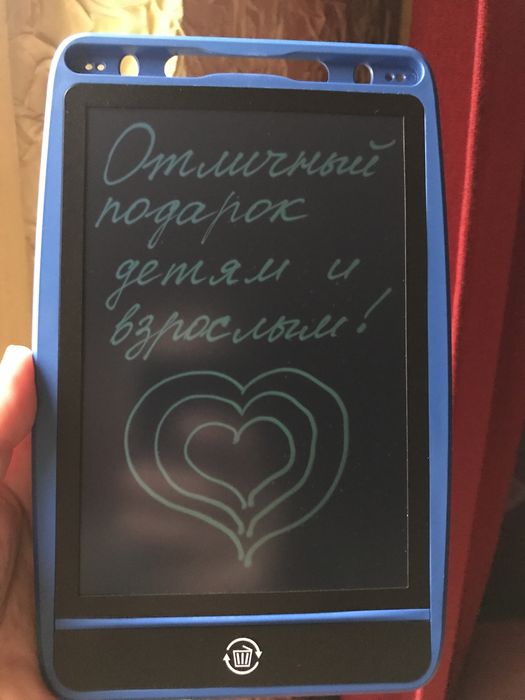 Отличный
подарок
детям и
взрослым!